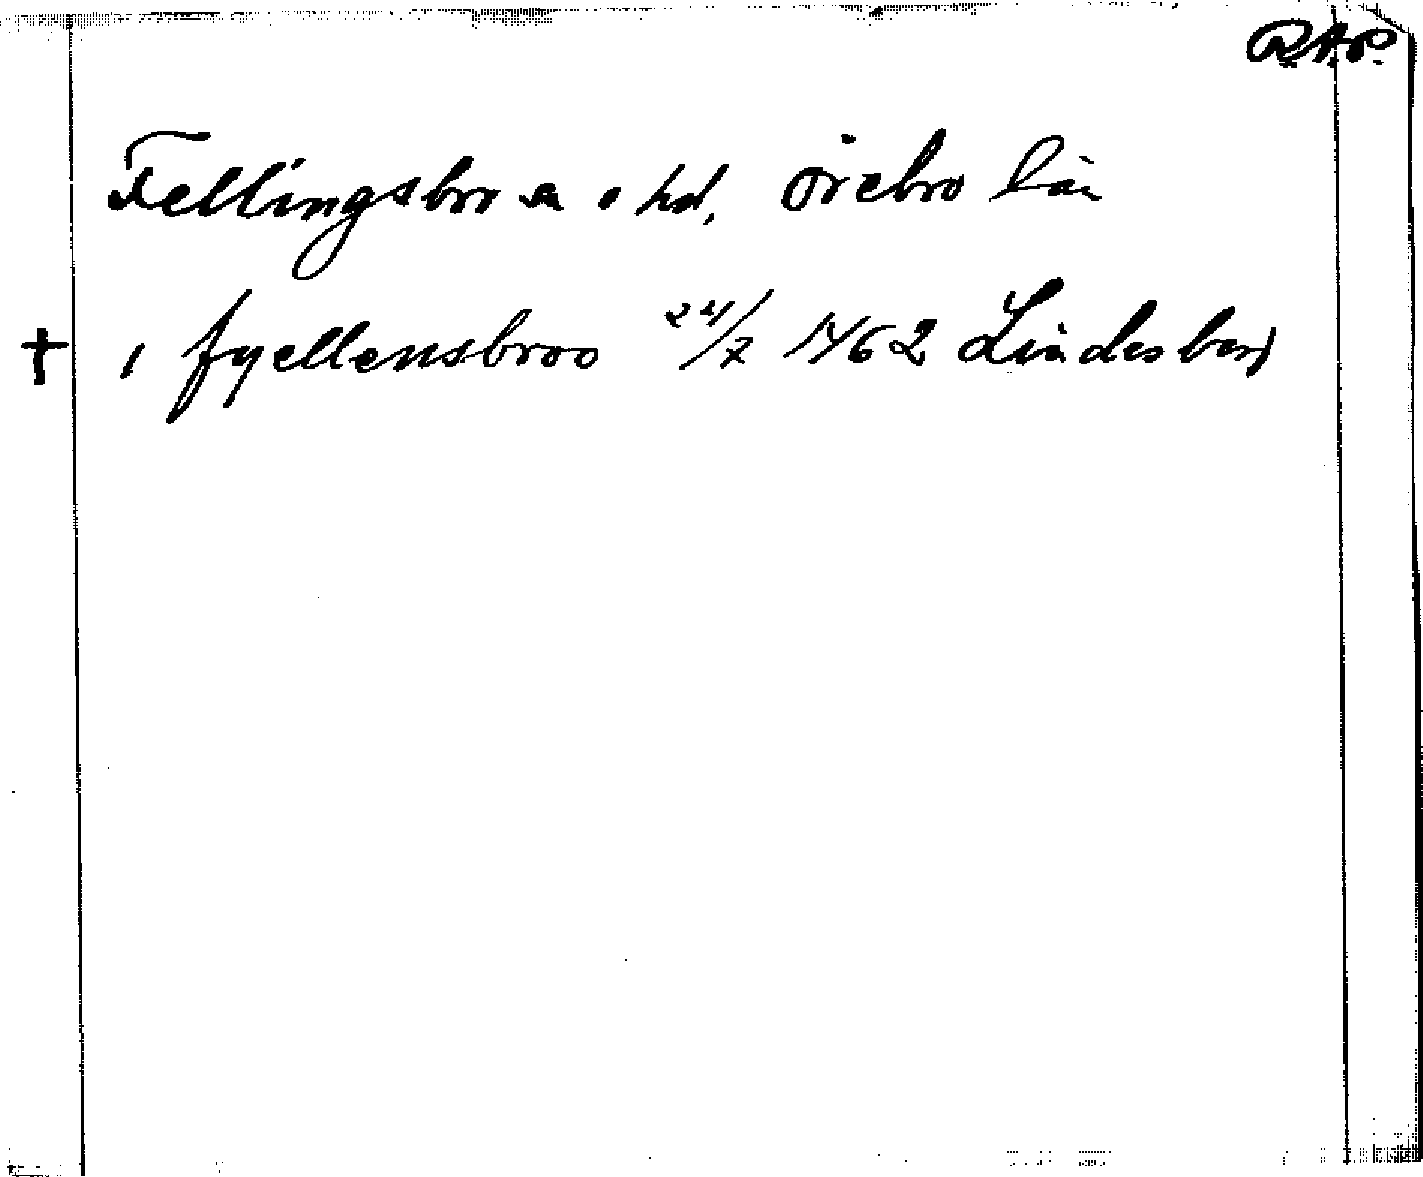 R.A.P.
Fellingsbro sn o hd, Örebro län
† i fyellensbroo 24/7 1462 Lindesberg